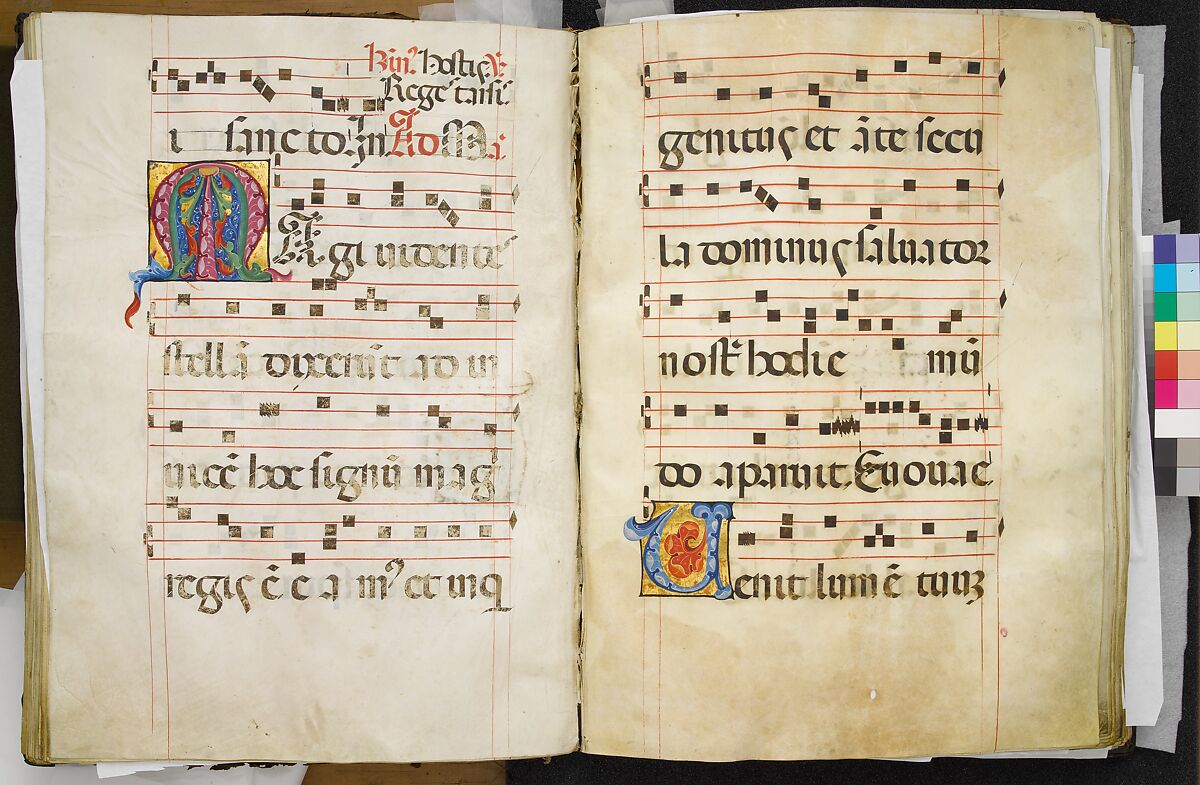 hin̄. hostis. ℣.
Rege tarsi.
i sancto. In. Ad Ma.
Magi uidente
stellā dixerūt ad in
uicē hoc signū mag
regis ē e a mꝰ et inq
genituſ et āte secu
la dominus saluator
nost̄ hodie mū
do aparuit. Euouae
Uenit lum ē tuuꝫ